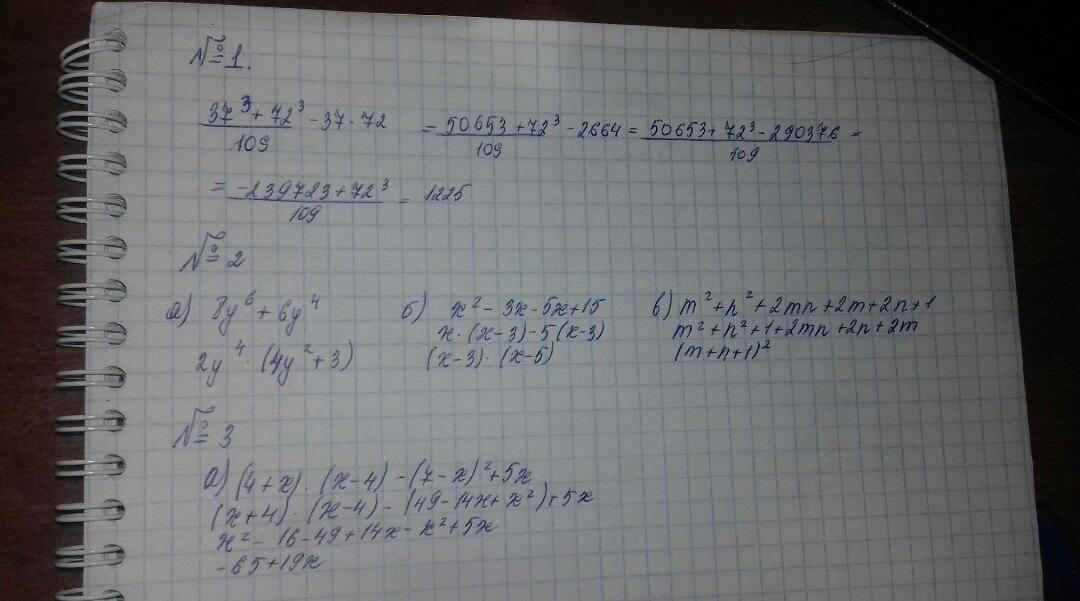 №1.
37³ + 72³ / 109 - 37·72 = 50653 + 72³ / 109 - 2664 = 50653 + 72³ - 290376 / 109 =
= -239723 + 72³ / 109 = 1225
№2
а) 8y⁶ + 6y⁴ б) x² - 3x - 5x + 15 в) m² + n² + 2mn + 2m + 2n + 1
2y⁴ · (4y² + 3) x·(x-3) - 5(x-3) m² + n² + 1 + 2mn + 2n + 2m
(x-3)·(x-5) (m+n+1)²
№3
а) (4+x)·(x-4) - (7-x)² + 5x
(x+4)·(x-4) - (49 - 14x + x²) + 5x
x² - 16 - 49 + 14x - x² + 5x
-65 + 19x